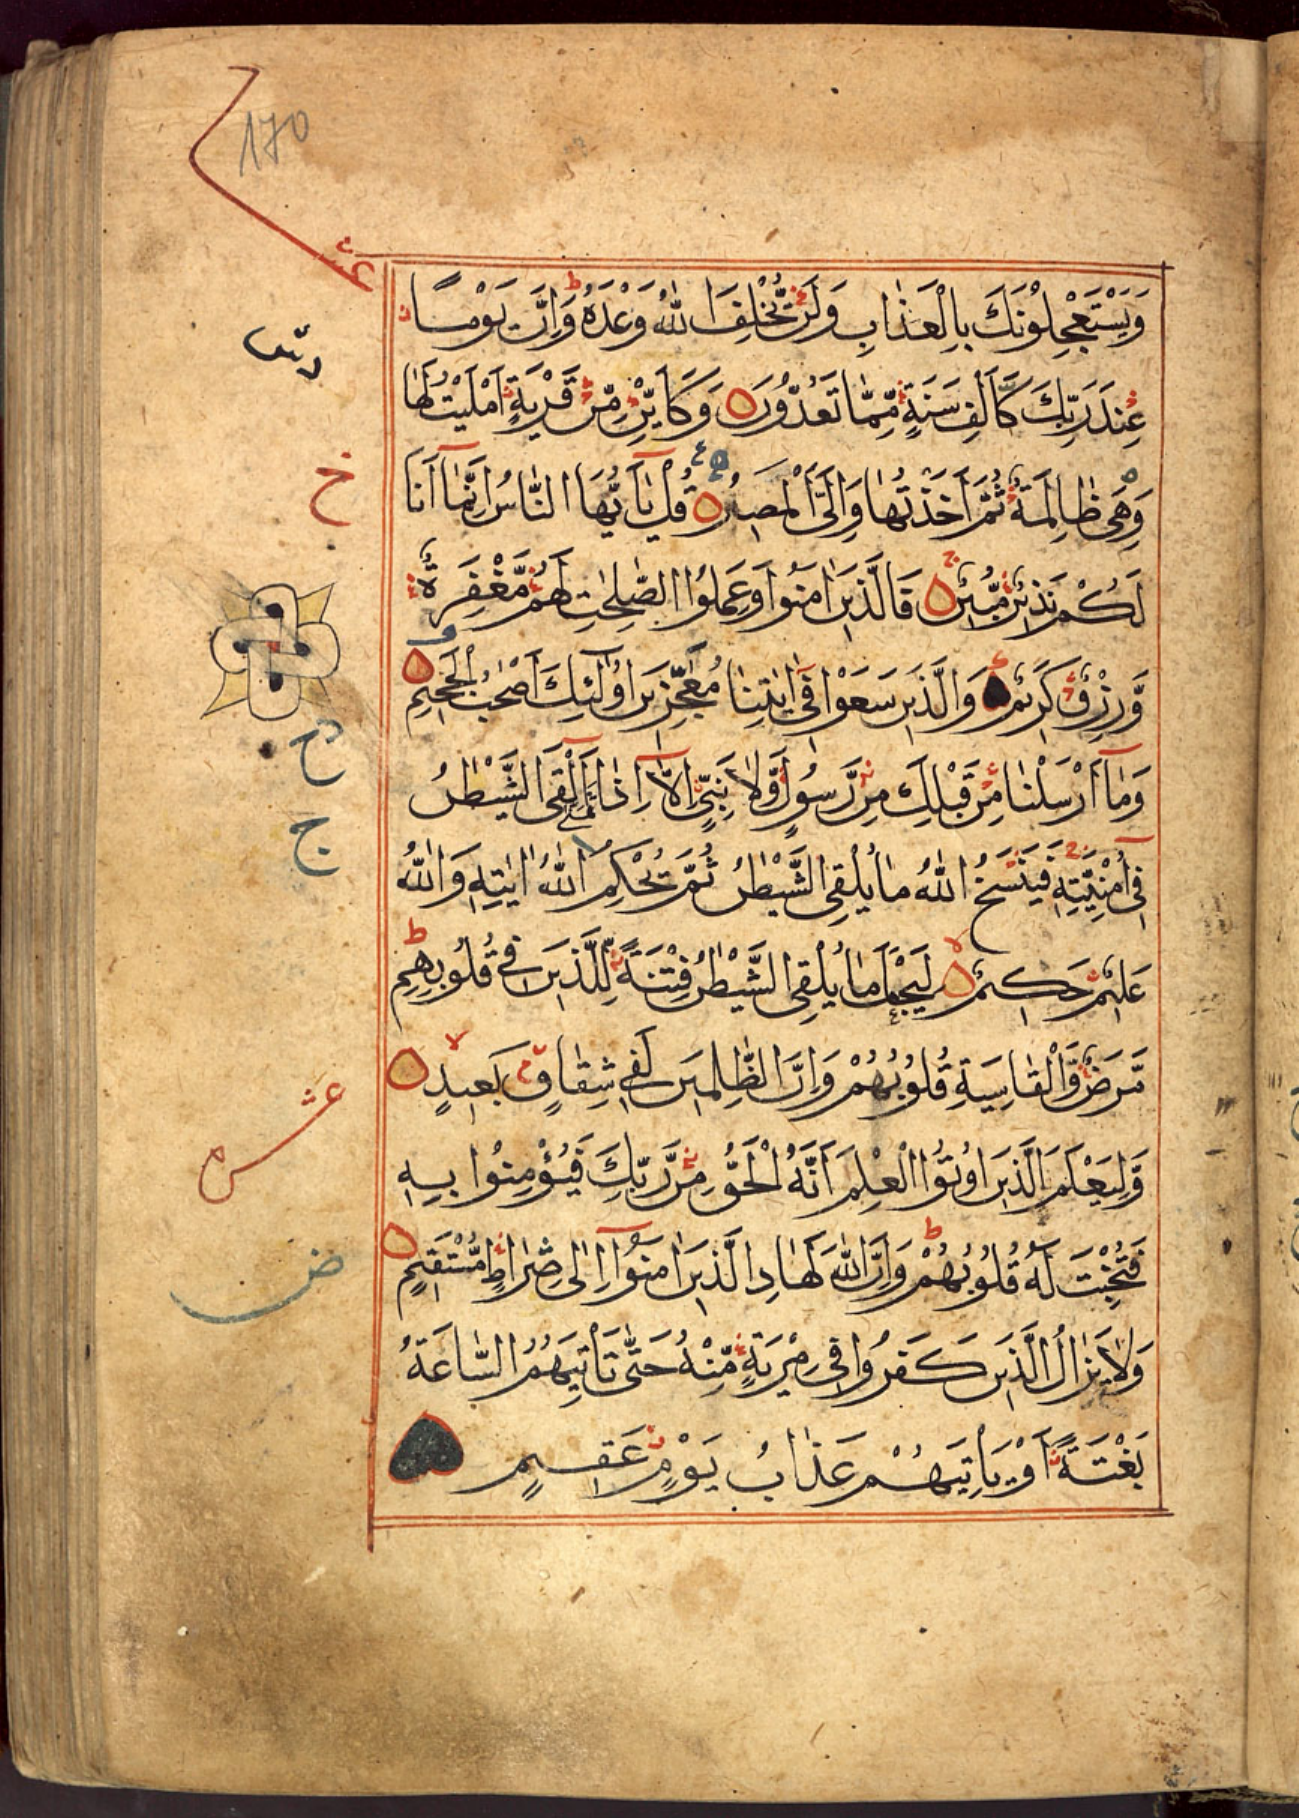 170
عشر
وَيَسْتَعْجِلُوْنَكَ بِالْعَذَابِ وَلَنْ يُّخْلِفَ اللّٰهُ وَعْدَهٗ ط وَاِنَّ يَوْمًا
عِنْدَ رَبِّكَ كَاَلْفِ سَنَةٍ مِّمَّا تَعُدُّوْنَ وَكَاَيِّنْ مِّنْ قَرْيَةٍ اَمْلَيْتُ لَهَا
خ
وَهِىَ ظَالِمَةٌ ثُمَّ اَخَذْتُهَا وَاِلَىَّ الْمَصِيْرُ قُلْ يٰٓاَيُّهَا النَّاسُ اِنَّمَآ اَنَا
لَكُمْ نَذِيْرٌ مُّبِيْنٌ فَالَّذِيْنَ اٰمَنُوْا وَعَمِلُوا الصّٰلِحٰتِ لَهُمْ مَّغْفِرَةٌ
وَّرِزْقٌ كَرِيْمٌ وَالَّذِيْنَ سَعَوْا فِىْٓ اٰيٰتِنَا مُعٰجِزِيْنَ اُولٰٓئِكَ اَصْحٰبُ الْجَحِيْمِ
ج
وَمَآ اَرْسَلْنَا مِنْ قَبْلِكَ مِنْ رَّسُوْلٍ وَّلَا نَبِىٍّ اِلَّآ اِذَا تَمَنّٰٓى اَلْقَى الشَّيْطٰنُ
فِىْٓ اُمْنِيَّتِهٖ فَيَنْسَخُ اللّٰهُ مَا يُلْقِى الشَّيْطٰنُ ثُمَّ يُحْكِمُ اللّٰهُ اٰيٰتِهٖ وَاللّٰهُ
عَلِيْمٌ حَكِيْمٌ لا لِيَجْعَلَ مَا يُلْقِى الشَّيْطٰنُ فِتْنَةً لِّلَّذِيْنَ فِىْ قُلُوْبِهِمْ ط
مَّرَضٌ وَّالْقَاسِيَةِ قُلُوْبُهُمْ وَاِنَّ الظّٰلِمِيْنَ لَفِىْ شِقَاقٍ بَعِيْدٍ لا
عشر
وَّلِيَعْلَمَ الَّذِيْنَ اُوْتُوا الْعِلْمَ اَنَّهُ الْحَقُّ مِنْ رَّبِّكَ فَيُؤْمِنُوْا بِهٖ
ض
فَتُخْبِتَ لَهٗ قُلُوْبُهُمْ ط وَاِنَّ اللّٰهَ لَهَادِ الَّذِيْنَ اٰمَنُوْٓا اِلٰى صِرَاطٍ مُّسْتَقِيْمٍ
وَلَا يَزَالُ الَّذِيْنَ كَفَرُوْا فِىْ مِرْيَةٍ مِّنْهُ حَتّٰى تَاْتِيَهُمُ السَّاعَةُ
بَغْتَةً اَوْ يَاْتِيَهُمْ عَذَابُ يَوْمٍ عَقِيْمٍ